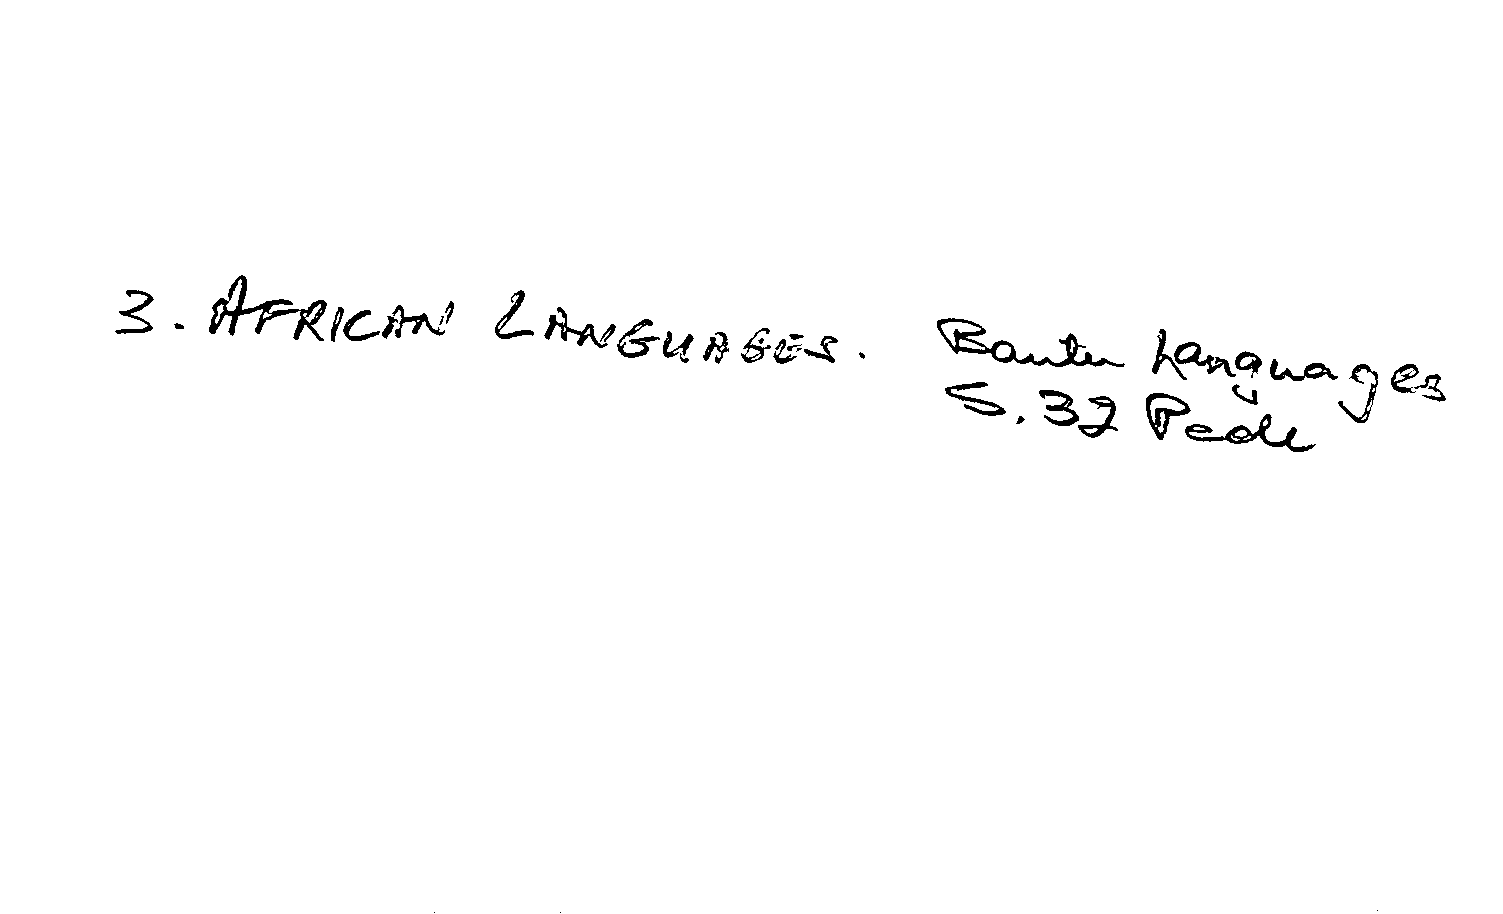 3. AFRICAN LANGUAGES. Bantu Languages
S.32 Pedi